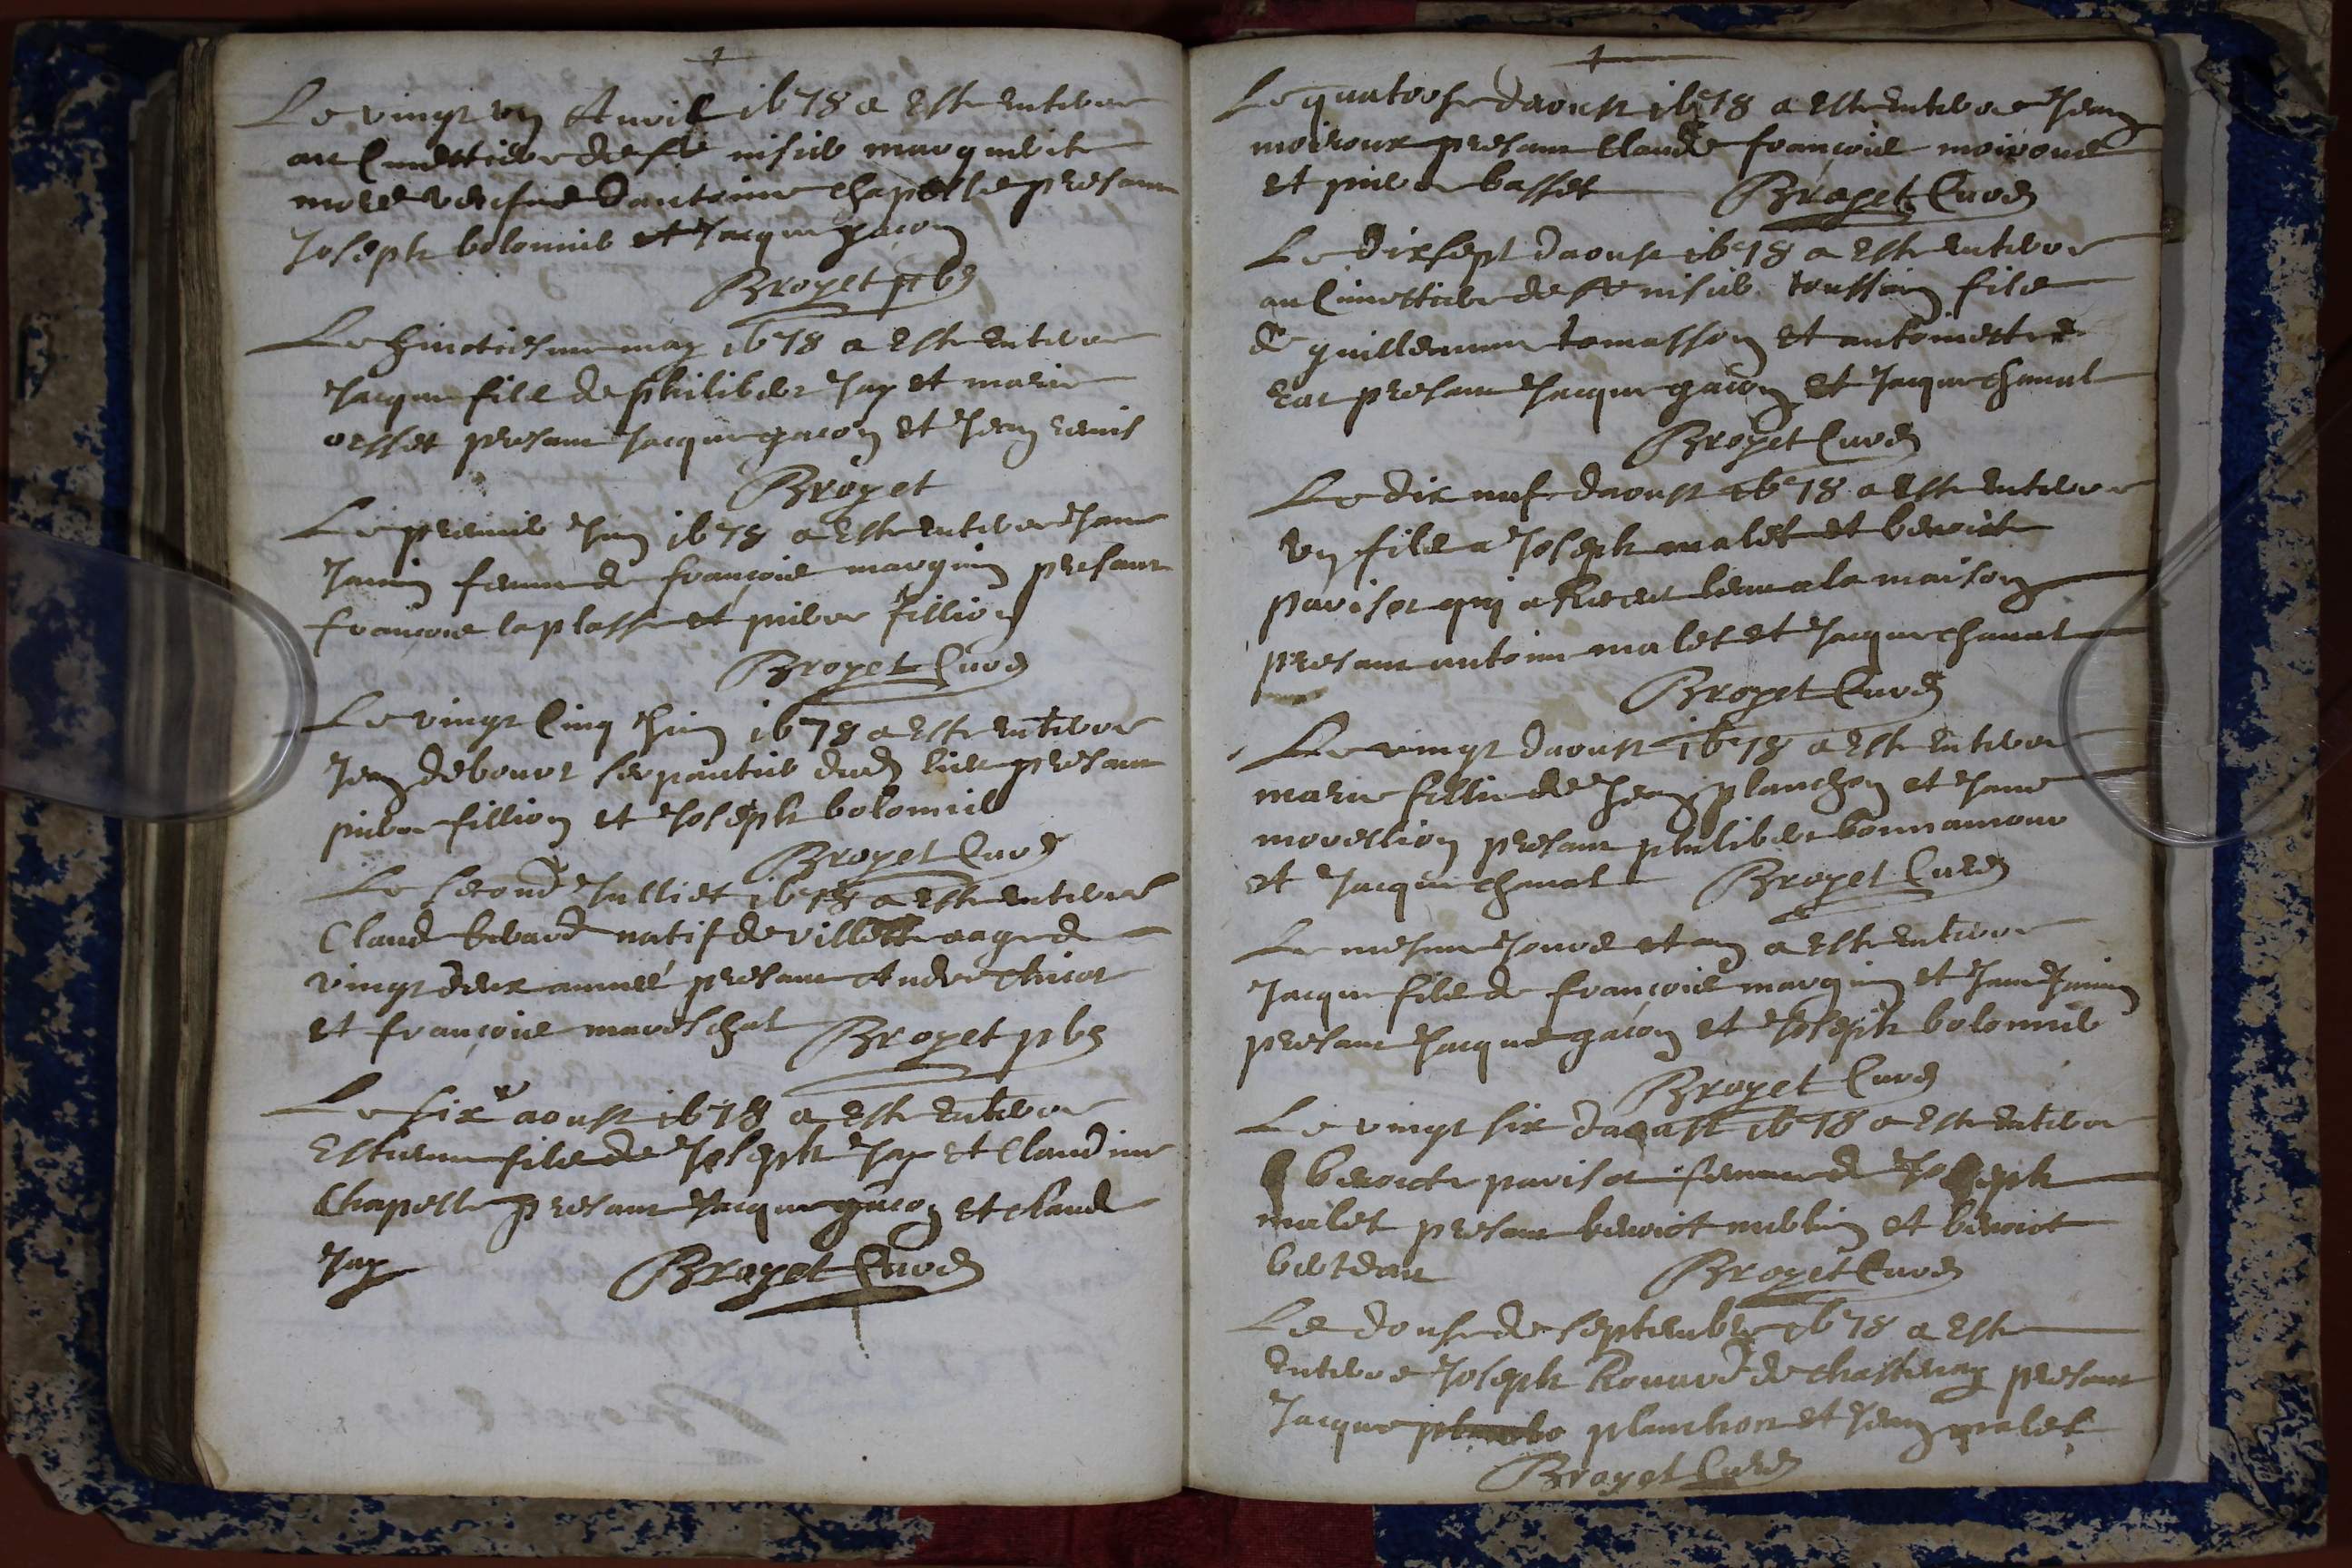 Le vingt un Avril 1678 a este enterre
au Cimettiere de St nisier marguerite
morel veufve d'antoine Chapelle presant
Joseph bolomier et Jacque gacon
Broyet pbr
Le huictiesme may 1678 a este enterre
Jacque fils de philiber Jay et marie
orsset presant Jacque gacon et Jean
Broyet
Le premier Juin 1678 a este enterre Jane
Janin femme de françois marguin presant
françois laplasse et pierre fillion
Broyet Curé
Le vingt Cinq Juin 1678 a este enterre
Jean debourt serpantier dud lieu presant
pierre fillion et Joseph bolomier
Broyet Curé
Le second Julliet 1678 a este enterre
Claude natif de villette aagé de
vingt deux année presant Andre
et françois mareschat Broyet pbr
Le six aoust 1678 a este enterre
Estienne fils de Joseph Jay et Claudine
Chapelle presant Jacque gacon et claude
Jay Broyet Curé
Le quatorse daoust 1678 a este enterre Jean
moiroux presant Claude françois moiroux
et pierre basset Broyet Curé
Le dixsept daoust 1678 a este enterre
au Cimettiere de St nisier toussain fils
de guillemme tomasson et antoinette
presant Jacque gacon et Jacque chanal
Broyet Curé
Le dix nuf daoust 1678 a este enterre
un fils a Joseph malet et benoite
parisot qui a Receu leau a la maison
presant antoine malet et Jacque chanal
Broyet Curé
Le vingt daoust 1678 a este enterre
marie fillie de Jean planchon et Jane
morellion presant philiber bonnamour
et Jacque chanal Broyet Curé
Le mesme Jour et an a este enterre
Jacque fils de françois marguin et Jane Janin
presant Jacque gacon et Joseph bolomier
Broyet Curé
Le vingt six daoast 1678 a este enterre
benoicte parisot femme de Joseph
malet presant benoict et benoict
Broyet Curé
Le douse de septembre 1678 a este
enterre Joseph Rouard de chastenay presant
Jacque planchon et Jean malet
Broyet Curé